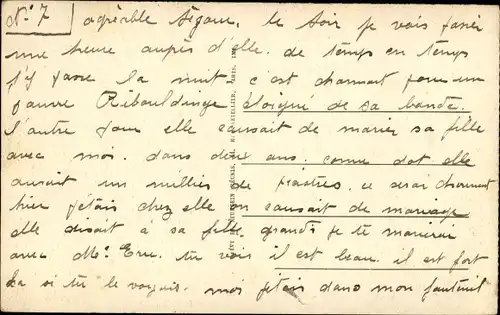 No 7 agréable séjour. le soir je vais passer
une heure auprès d'elle. de temps en temps
j'y passe la nuit. c'est charmant pour un
pauvre Ribouldingue éloigné de sa bande.
l'autre jour elle causait de marier sa fille
avec moi. dans deux ans. comme dot elle
aurait un millier de piastres. ce serai charmant
hier j'étais chez elle on causait de mariage
elle disait à sa fille. grande je te marierai
avec Mr tu vois il est beau. il est fort
La si tu le voyais. moi j'étais dans mon fauteuil